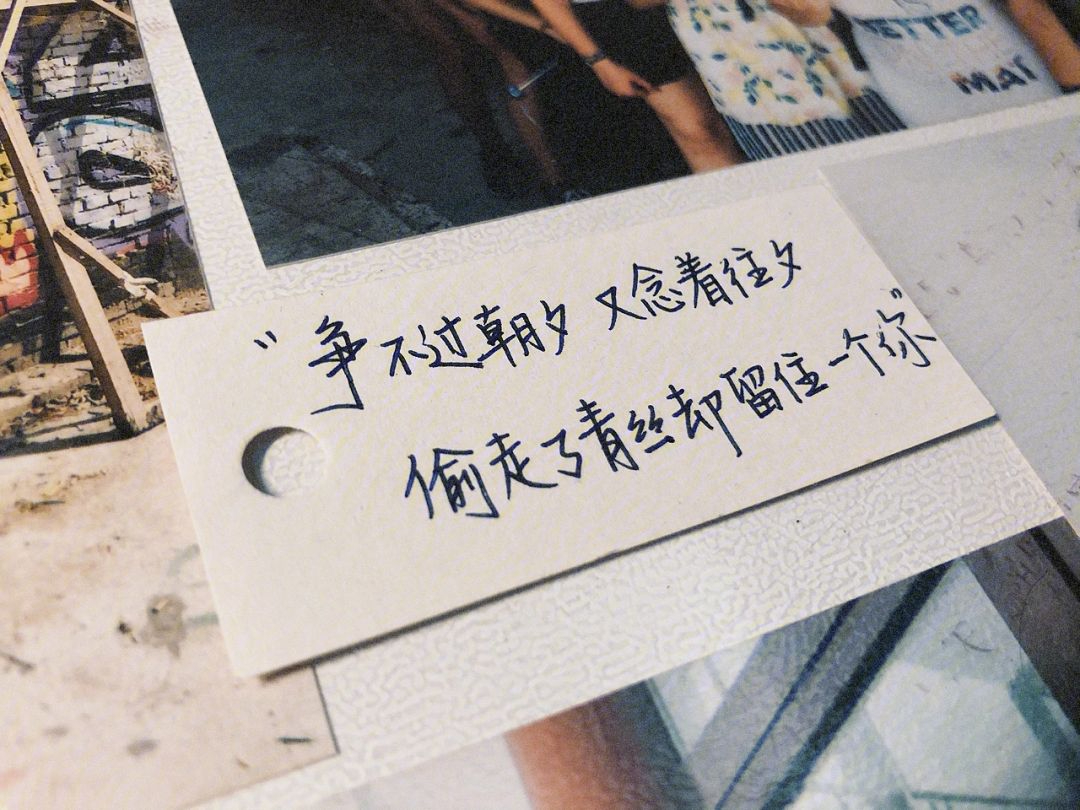 ETTER
MAI
"争不过朝夕 又念着往夕
偷走了青丝却留住一个你"